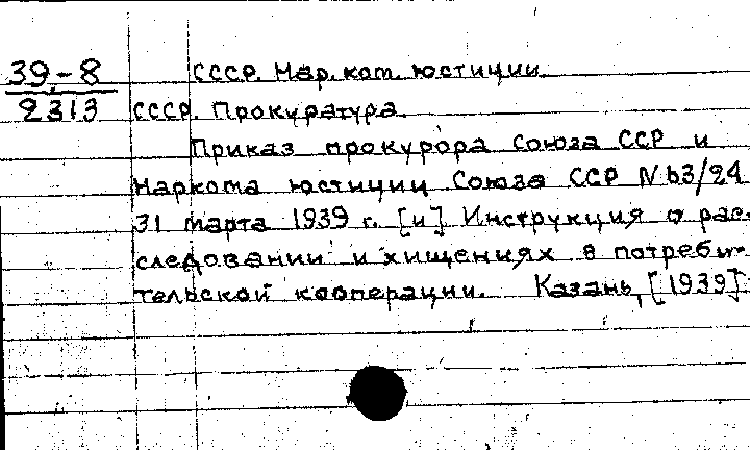 39-8
2313
СССР. Нар. ком. юстиции.
СССР. Прокуратура.
Приказ прокурора Союза ССР и
Наркома юстиции Союза ССР № 63/24
31 марта 1939 г. [и] Инструкция о рас-
следовании и хищениях в потреби-
тельской кооперации. Казань, [1939].